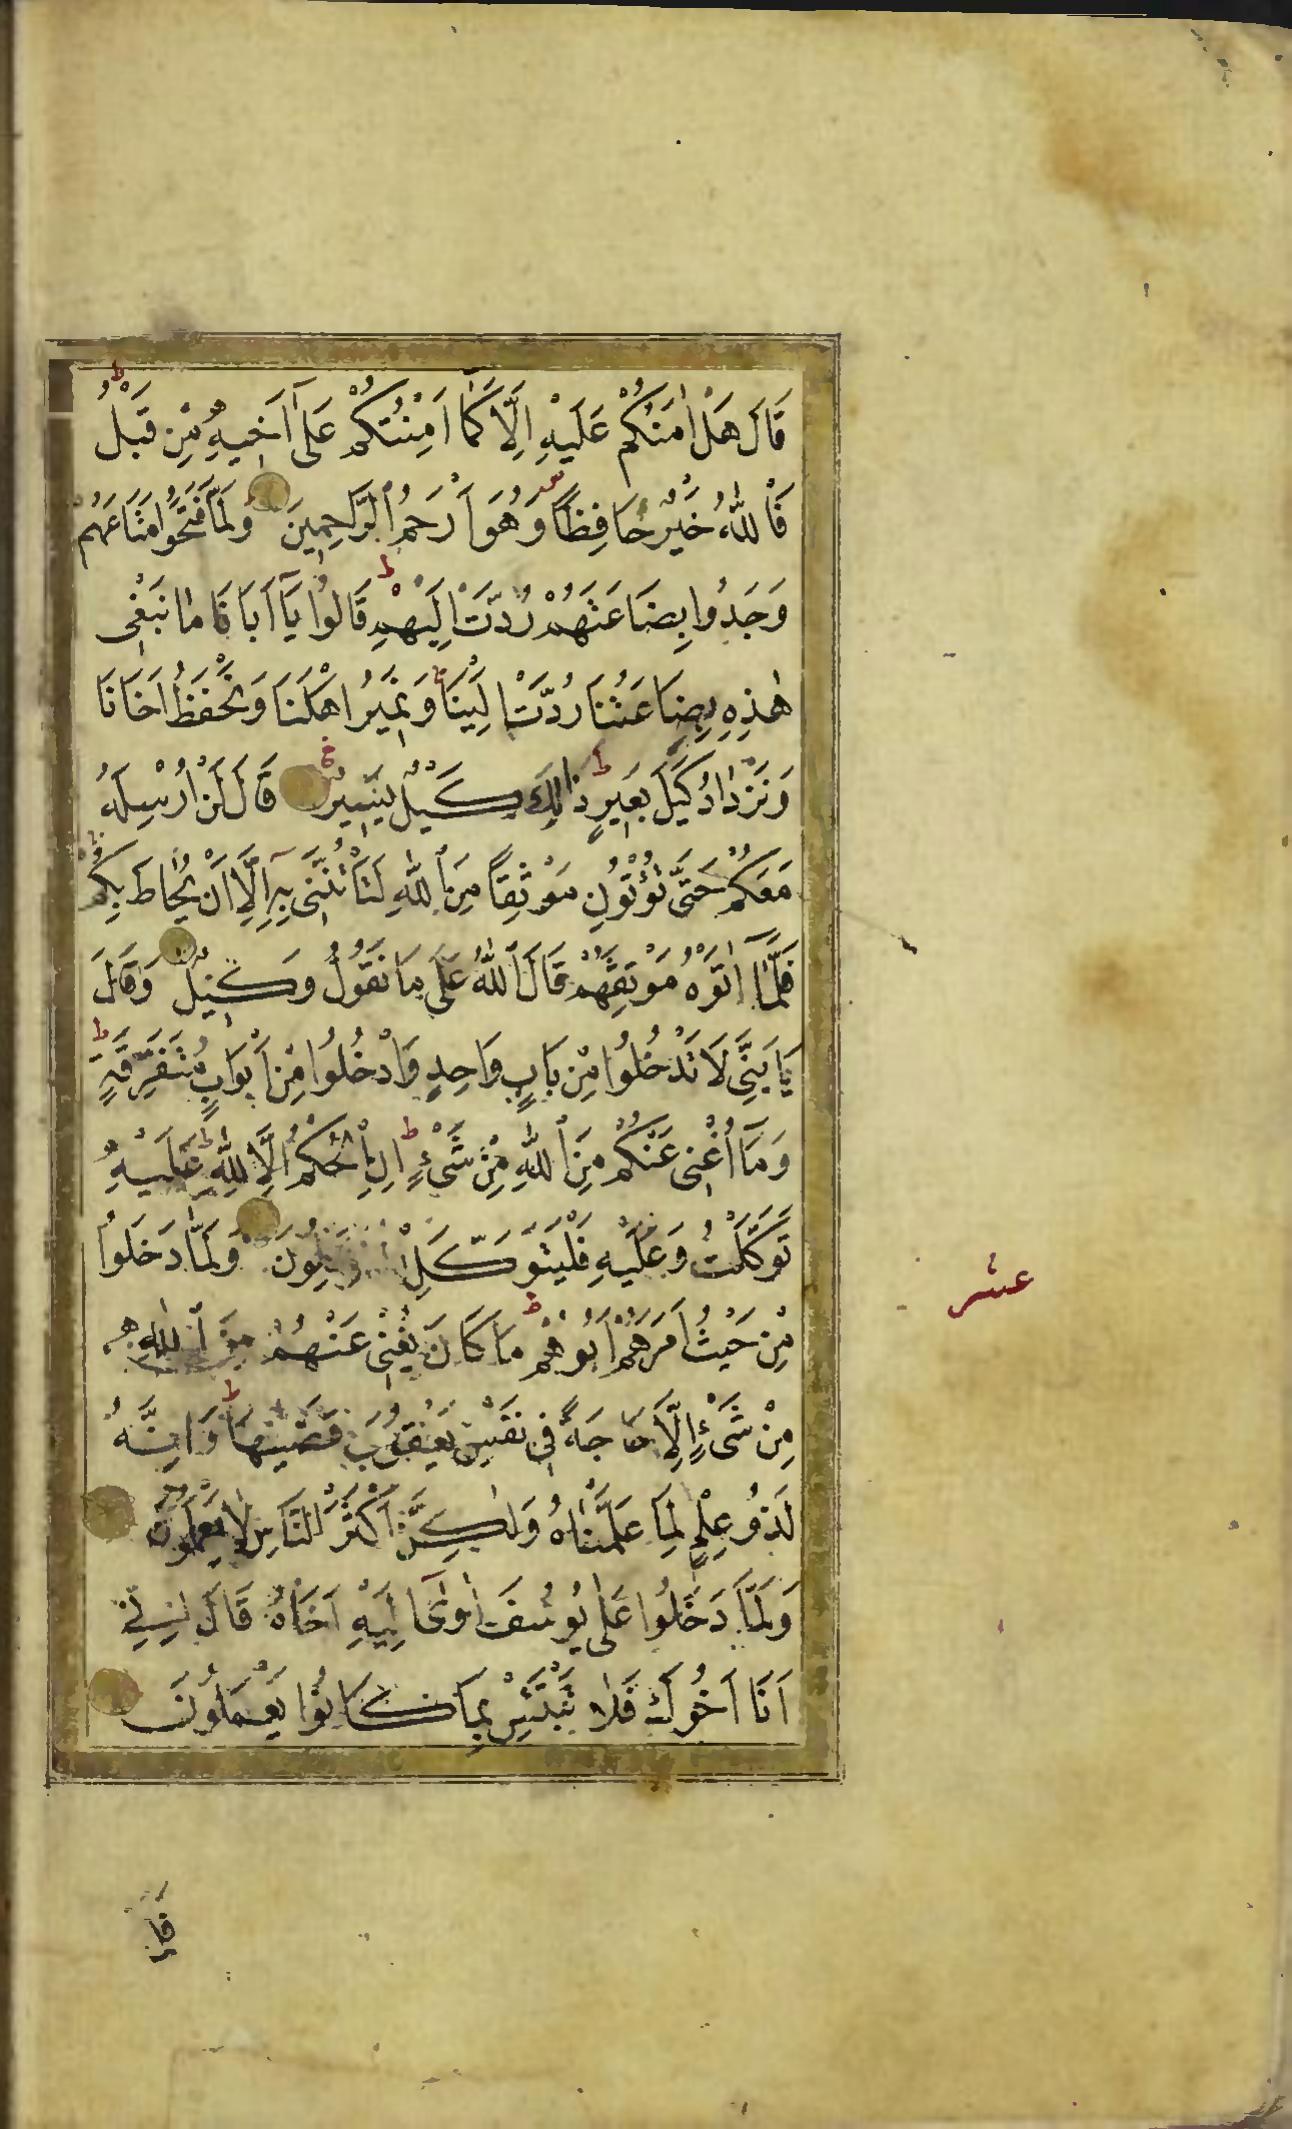 قَالَ هَلْ اٰمَنُكُمْ عَلَيْهِ اِلَّا كَمَٓا اَمِنْتُكُمْ عَلٰٓى اَخِيهِ مِنْ قَبْلُ ط
فَاللّٰهُ خَيْرٌ حَافِظًا وَهُوَ اَرْحَمُ الرَّاحِمِينَ وَلَمَّا فَتَحُوا مَتَاعَهُمْ
وَجَدُوا بِضَاعَتَهُمْ رُدَّتْ اِلَيْهِمْ ط قَالُوا يَٓا اَبَانَا مَا نَبْغٖى
هٰذِهِ بِضَاعَتُنَا رُدَّتْ اِلَيْنَا وَنَمِيرُ اَهْلَنَا وَنَحْفَظُ اَخَانَا
وَنَزْدَادُ كَيْلَ بَعِيرٍ ط ذٰلِكَ كَيْلٌ يَسِيرٌ قَالَ لَنْ اُرْسِلَهُ
مَعَكُمْ حَتّٰى تُؤْتُونِ مَوْثِقًا مِنَ اللّٰهِ لَتَأْتُنَّنٖى بِهٖٓ اِلَّٓا اَنْ يُحَاطَ بِكُمْ
فَلَمَّٓا اٰتَوْهُ مَوْثِقَهُمْ قَالَ اللّٰهُ عَلٰى مَا نَقُولُ وَكٖيلٌ وَقَالَ
يَا بَنِىَّ لَا تَدْخُلُوا مِنْ بَابٍ وَاحِدٍ وَادْخُلُوا مِنْ اَبْوَابٍ مُتَفَرِّقَةٍ ط
وَمَٓا اُغْنٖى عَنْكُمْ مِنَ اللّٰهِ مِنْ شَىْءٍ ط اِنِ الْحُكْمُ اِلَّا لِلّٰهِ ط عَلَيْهِ
تَوَكَّلْتُ وَعَلَيْهِ فَلْيَتَوَكَّلِ وَلَمَّا دَخَلُوا
مِنْ حَيْثُ اَمَرَهُمْ اَبُوهُمْ ط مَا كَانَ يُغْنٖى عَنْهُمْ مِنَ اللّٰهِ
مِنْ شَىْءٍ اِلَّا حَاجَةً فٖى نَفْسِ يَعْقُوبَ قَضٰيهَا ط وَاِنَّهُ
لَذُو عِلْمٍ لِمَا عَلَّمْنَاهُ وَلٰكِنَّ اَكْثَرَ النَّاسِ لَا يَعْلَمُونَ
وَلَمَّا دَخَلُوا عَلٰى يُوسُفَ اٰوٰٓى اِلَيْهِ اَخَاهُ قَالَ اِنّٖى
اَنَا اَخُوكَ فَلَا تَبْتَئِسْ بِمَا كَانُوا يَعْمَلُونَ
عشر